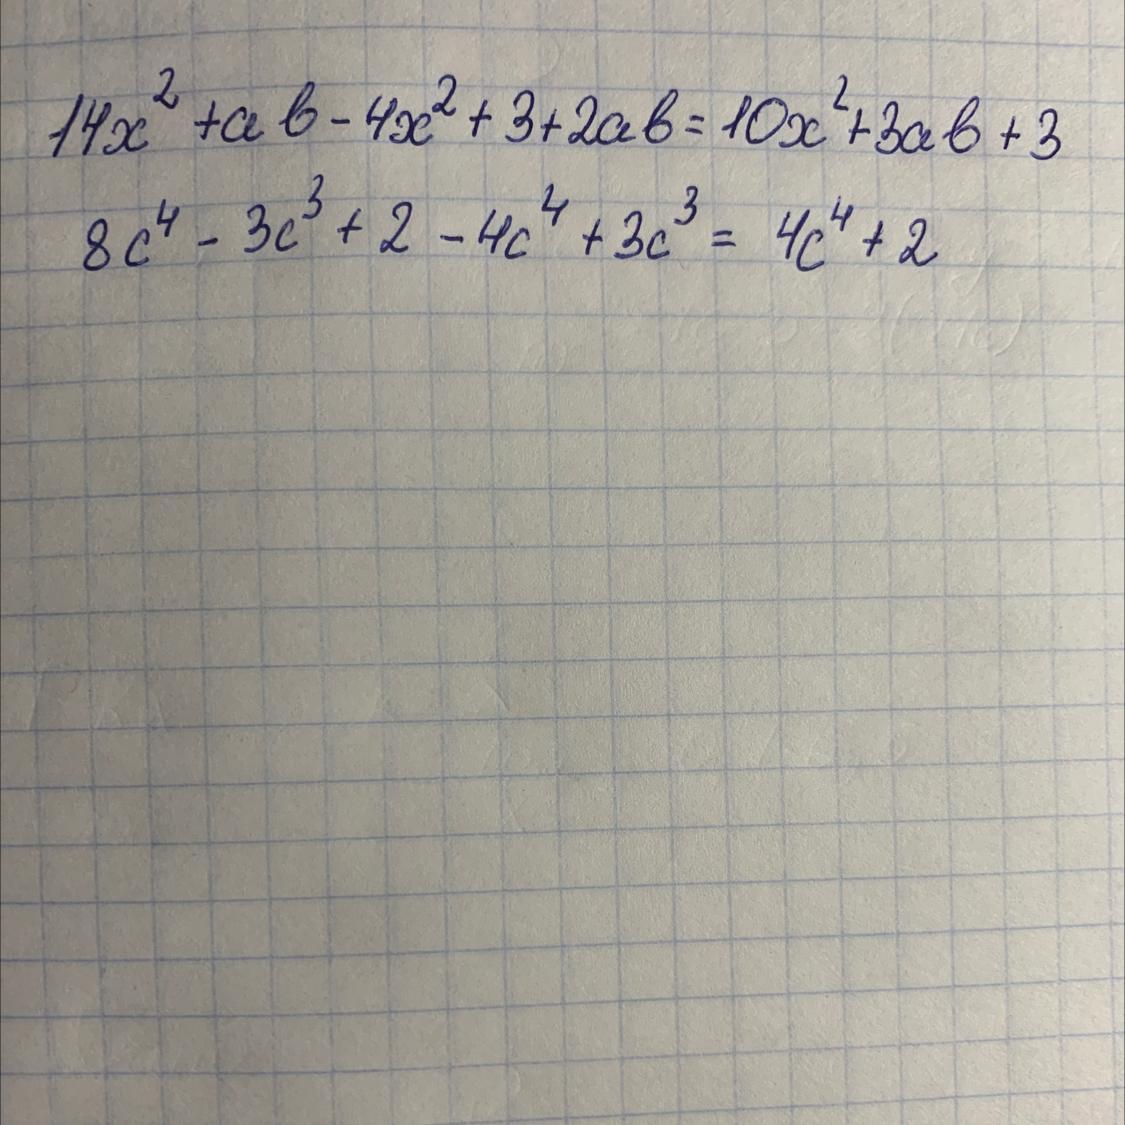 14x² + ab - 4x² + 3 + 2ab = 10x² + 3ab + 3
8c⁴ - 3c³ + 2 - 4c⁴ + 3c³ = 4c⁴ + 2